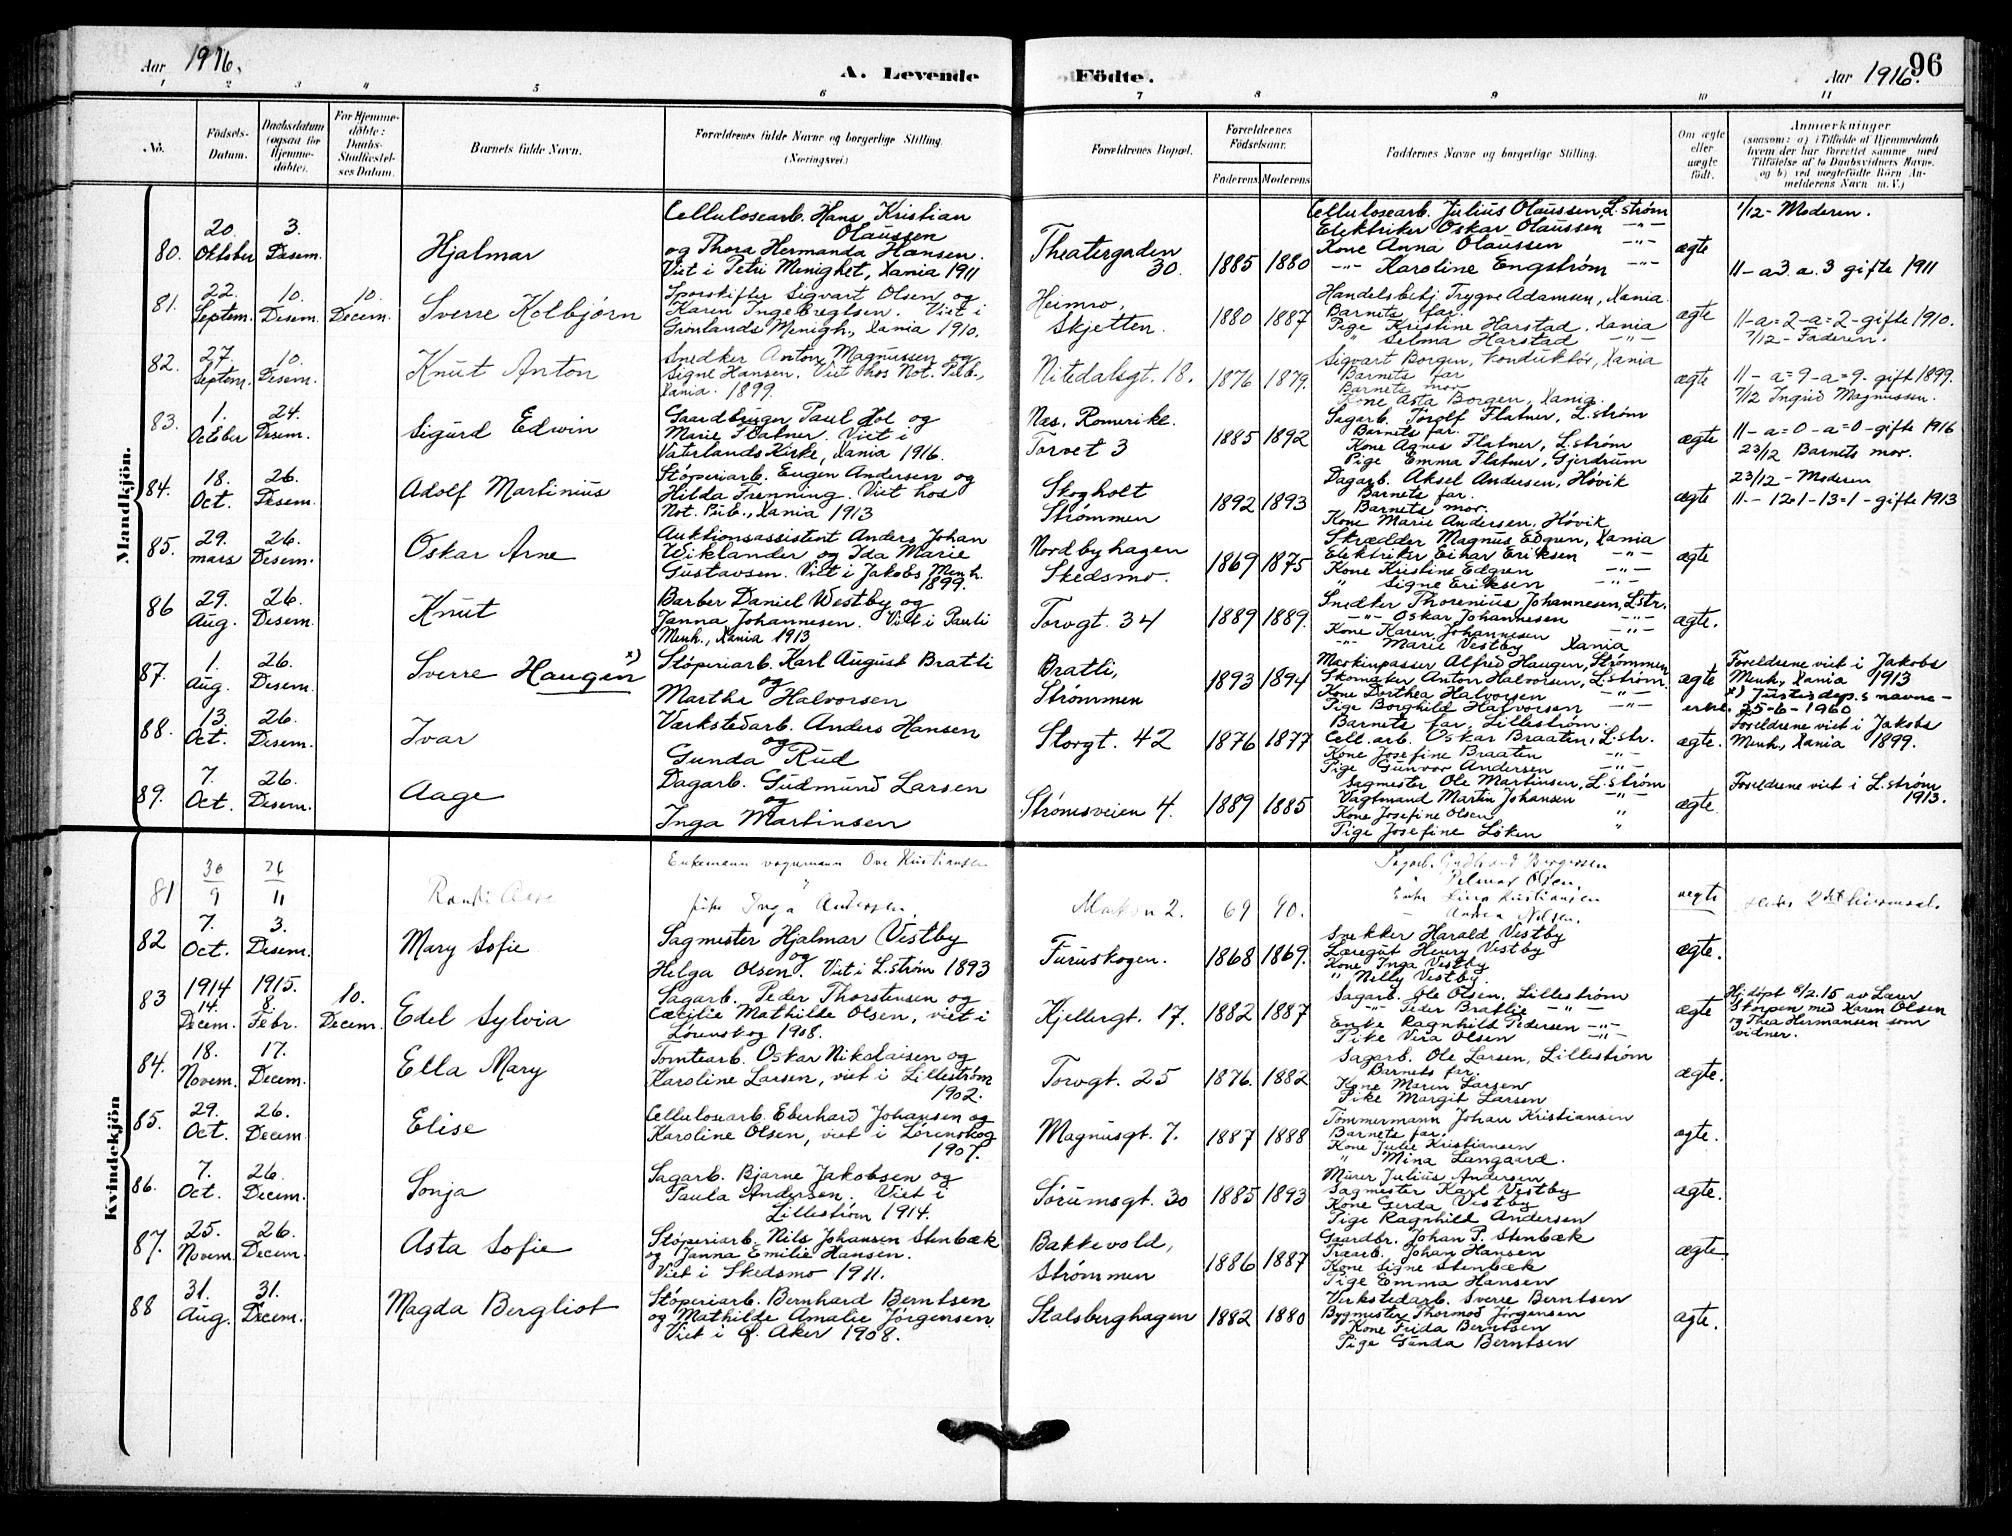 Aar 1916.
A. Levende Födte.
Aar 1916.
96
1 2 3 4 5 6 7 8 9 10 11
No.
Födsels-Datum.
Daabsdatum (ogsaa for Hjemmedöbte).
For Hjemmedöbte: Daabs-Stadfæstelses Datum.
Barnets fulde Navn.
Forældrenes fulde Navne og borgerlige Stilling. (Næringsvei)
Forældrenes Bopæl.
Forældrenes Födselsaar.
Faderens Moderens
Faddernes Navne og borgerlige Stilling.
Om ægte eller uægte født.
Anmærkninger
(saasom: a) i Tilfælde af Hjemmedaab
hvem der har forrettet samme med
Tilföielse af to Daabsvidners Navne.
og b) ved uægtefödte Börn Anmelderens Navn m. V.)
Mandkjön.
80. 20. Oktober 3. Desem. Hjalmar
Cellulosearb. Hans Kristian
Olaussen
og Thora Hermanda Hansen.
Viet i Petri Menighet, Xania 1911
Theatergaden
30.
1885 1880
Cellulosearb. Julius Olaussen, L.strøm
Elektriker Oskar Olaussen -"-
Kone Anna Olaussen -"-
-"- Karoline Engstrøm -"-
ægte
1/12 - Moderen.
11 - a3. a. 3 gifte 1911
81. 22. Septem. 10. Desem. 10. Decem. Sverre Kolbjørn
Sporskifter Sigvart Olsen og
Karen Ingebregtsen. Viet i
Grønlands Menigh., Xania 1910.
Heimro,
Skjetten.
1880 1887
Handelsbetj. Trygve Adamsen, Xania.
Barnets far.
Pige Kristine Harstad, Xania
" Selma Harstad -"-
ægte
11 - a = 2 - a = 2 - gifte 1910.
7/12 - Faderen.
82. 27. Septem. 10. Desem. Knut Anton
Snedker Anton Magnussen og
Signe Hansen. Viet hos Not. Pub.,
Xania. 1899.
Nitedalsgt. 18.
1876 1879.
Sigvart Borgen, konduktør, Xania
Barnets far
Barnets mor
Kone Asta Borgen, Xania.
ægte
11 - a = 9 - a = 9 - gift 1899.
7/12 Ingrid Magnussen.
83. 1. October 24. Desem. Sigurd Edwin
Gaardbruger Paul Hol og
Marie Flatner. Viet i
Vaterlands Kirke, Xania 1916.
Nas, Romerike.
Torvet 3
1885 1892
Sagarb. Torolf Flatner, L.strøm
Barnets far.
Kone Agnes Flatner, L.strøm
Pige Emma Flatner, Gjerdrum
ægte
11 - a = 0 - a = 0 - gifte 1916
23/12 Barnets mor.
84. 18. Oct. 26. Desem. Adolf Martinius
Støperiarb. Eugen Andersen og
Hilda Trenning. Viet hos
Not. Pub., Xania 1913
Skogholt
Strømmen
1892 1893
Dagarb. Aksel Andersen, Høvik
Barnets far.
Barnets mor.
Kone Marie Andersen, Høvik
ægte
23/12 - Moderen
11. - 12=1 - 13=1 - gifte 1913
85. 29. mars 26. Desem. Oskar Arne
Auktionsassistent Anders Johan
Wiklander og Ida Marie
Gustavsen. Viet i Jakobs Menh.
1899.
Nordbyhagen
Skedsmo.
1869 1875
Skrædder Magnus Edgren, Xania
Elektriker Einar Eriksen -"-
Kone Kristine Edgren -"-
" Signe Eriksen -"-
ægte
86 29. Aug. 26. Desem. Knut
Barber Daniel Westby og
Janna Johannesen. Viet i Pauli
Menh., Xania 1913
Torvgt. 34
1889 1889.
Snedker Thorenius Johannesen, Lstr.
-"- Oskar Johannesen -"-
Kone Karen Johannesen -"-
-"- Marie Vestby Xania
ægte.
87. 1. Aug. 26. Desem. Sverre Haugen x)
Støperiarb. Karl August Bratli
og
Martha Halvorsen
Bratli,
Strømmen
1893 1894
Maskinpasser Alfred Haugen, Strømmen
Skomaker Anton Halvorsen, L.strøm.
Kone Dorthea Halvorsen -"-
Pige Borghild Halvorsen -"-
ægte
Foreldrene viet i Jakobs
Menh., Xania 1913
x) Justisdep.s navne-
erkl. 25-6-1960
88. 13. Oct. 26. Desem. Ivar
Værkstedarb. Anders Hansen
og
Gunda Rud
Storgt. 42
1876 1877
Barnets far, Lillestrøm.
Cell.arb. Oskar Braaten, L.str.
Kone Josefine Braaten -"-
Pige Gunvor Andersen -"-
ægte.
Foreldrene viet i Jakobs
Menh., Xania 1899.
89. 7. Oct. 26. Desem. Aage
Dagarb. Gudmund Larsen
og
Inga Martinsen
Strømsveien 4.
1889 1885
Sagmester Ole Martinsen, L.strøm
Vagtmand Martin Johansen -"-
Kone Josefine Olsen "
Pige Josefine Løken "
ægte.
Foreldrene viet i L.strøm
1913.
Kvindekjön
81 30/9 26/11
Enkemann vognmann Ove Kristiansen
Inga Andersen.
2. 69 90.
Bergersen
Olsen.
Enke Kristiansen
Andrea Nilsen.
ægte
82 7. Oct. 3. Desem. Mary Sofie
Sagmester Hjalmar Vestby
og
Helga Olsen. Viet i L.strøm 1893
Furuskogen.
1868 1869.
Snekker Harald Vestby
Læregut Henry Vestby
Kone Inga Vestby
" Nelly Vestby.
ægte.
83 1914 14. Decem. 1915. 8. Febr. 10. Decem. Edel Sylvia
Sagarb. Peder Thorstensen og
Cæcilie Mathilde Olsen, viet i
Lørenskog 1908.
Kjellergt. 17.
1882 1887
Sagarb. Ole Olsen, Lillestrøm
-"- Peder Bratlie -"-
Enke Ragnhild Pedersen -"-
Pike Vera Olsen -"-
ægte
Hj.døpt 8/2.15 av Lærer
Skorpen med Karen Olsen
og Thea Hermansen som
vidner.
84. 18. Novem. 17. Decem. Ella Mary
Tomtearb. Oskar Nikolaisen og
Karoline Larsen, viet i Lillestrøm
1902.
Torvgt. 25
1876. 1882
Sagarb. Ole Larsen, Lillestrøm
Barnets far.
Kone Maren Larsen
Pike Margit Larsen
ægte.
85. 29. Oct. 26. Decem. Elise
Cellulosearb. Eberhard Johansen og
Karoline Olsen, viet i Lørenskog
1907.
Magnusgt. 7.
1887 1888
Tømmermann Johan Kristiansen
Barnets far.
Kone Julie Kristiansen
" Mina Langaard.
ægte.
86. 7. Oct. 26. Decem. Sonja
Sagarb. Bjarne Jakobsen og
Paula Andersen. Viet i
Lillestrøm 1914.
Sørumsgt. 30
1885 1893
Murer Julius Andersen
Sagmester Karl Vestby
Kone Gerda Vestby
Pige Ragnhild Andersen
ægte.
87. 25. Novem. 26. Decem. Asta Sofie
Støperiarb. Nils Johansen Stenbæk
og Janna Emilie Hansen.
Viet i Skedsmo 1911.
Bakkevold,
Strømmen
1886 1887
Gaardbr. Johan P. Stenbæk
Træarb. Johan Hansen
Kone Signe Stenbæk
Pige Emma Hansen
ægte
88 31. Aug. 31. Decem. Magda Bergliot
Støperiarb. Bernhard Berntsen
og Mathilde Amalie Jørgensen.
Viet i Ø. Aker 1908.
Stalsberghagen
1882 1880
Verkstedarb. Sverre Berntsen
Bygmester Thormod Jørgensen
Kone Frida Berntsen
Pige Gunda Berntsen
ægte.